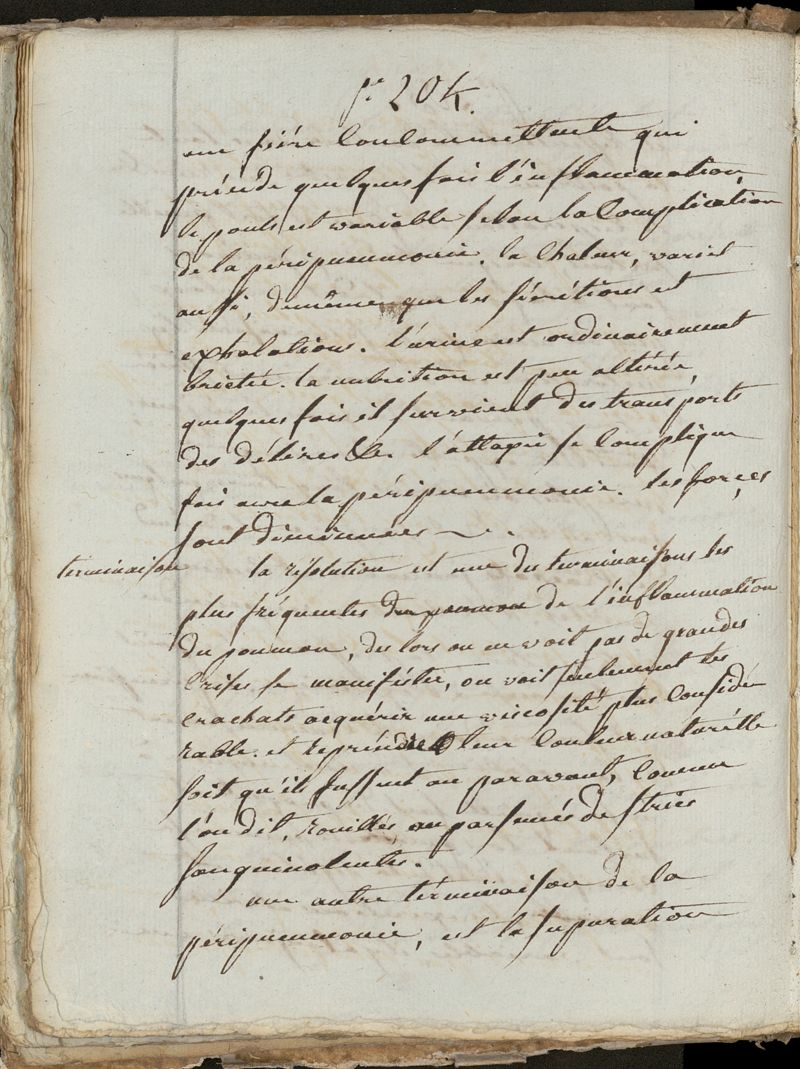 pe 204.
une fiévre concommettente qui
précede quelques fois l'inflammation,
le pouls est variable selon la Complication
de la péripneumonie. la Chaleur, variet
aussi, demême que les sécrétions et
exhalations. l'urine est ordinairement
la nutrition est peu altérée,
quelques fois il survient des transports
des délires &c. l' se Complique
fois avec la péripneumonie. les forces
sont diminuées
terminaison la résolution est une des terminaisons les
plus fréquentes du poumon de l'inflammation
du poumon, des lors on ne voit pas de grandes
Crises se manifester, on voit seulement les
crachats acquérir une viscosité plus Considé
rable. et reprendre leur Couleur naturélle
soit qu'ils fussent au paravant, Comme
l'on dit, rouillés, ou parsemés de stries
sanguinolentes.
une autre términaison de la
péripneumonie, est la supuration